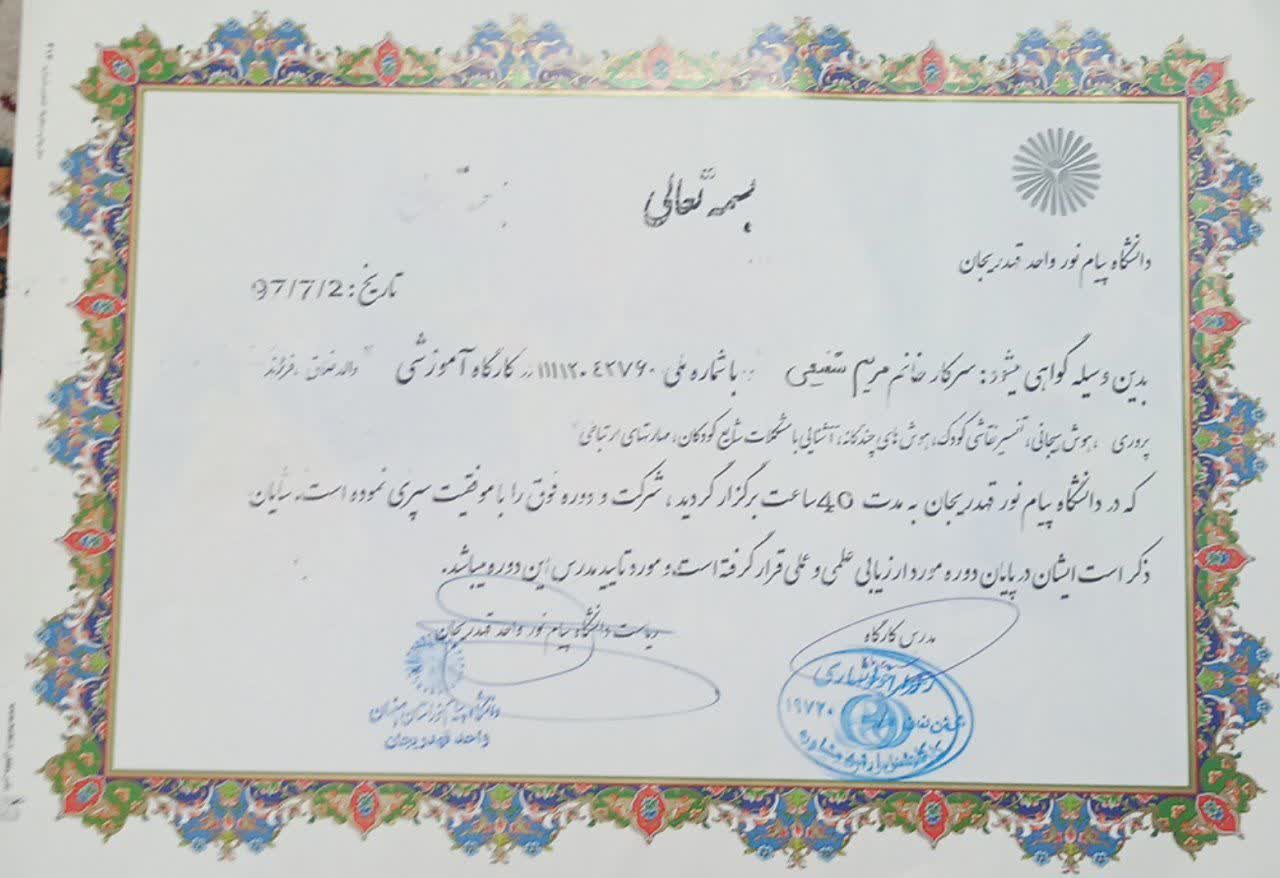 بسمه تعالی
دانشگاه پیام نور واحد قهدریجان
تاریخ: 97/7/2
بدین وسیله گواهی میشود: سرکار خانم مریم شفیعی با شماره ملی ۱۱۱۱۲۰۴۲۷۶۰ در کارگاه آموزشی " والد صادق، فرزند
پروری ، هوش هیجانی، تفسیر نقاشی کودک، هوش های چندگانه، آشنایی با مشکلات شایع کودکان، مهارتهای ارتباطی"
که در دانشگاه پیام نور قهدریجان به مدت 40 ساعت برگزار گردید ، شرکت و دوره فوق را با موفقیت سپری نموده است. شایان
ذکر است ایشان در پایان دوره مورد ارزیابی علمی و عملی قرار گرفته است و مورد تایید مدرس این دوره میباشد.
مدرس کارگاه
ریاست دانشگاه پیام نور واحد قهدریجان
۱۹۷۲۰
دانشگاه پیام نور استان اصفهان
واحد قهدریجان